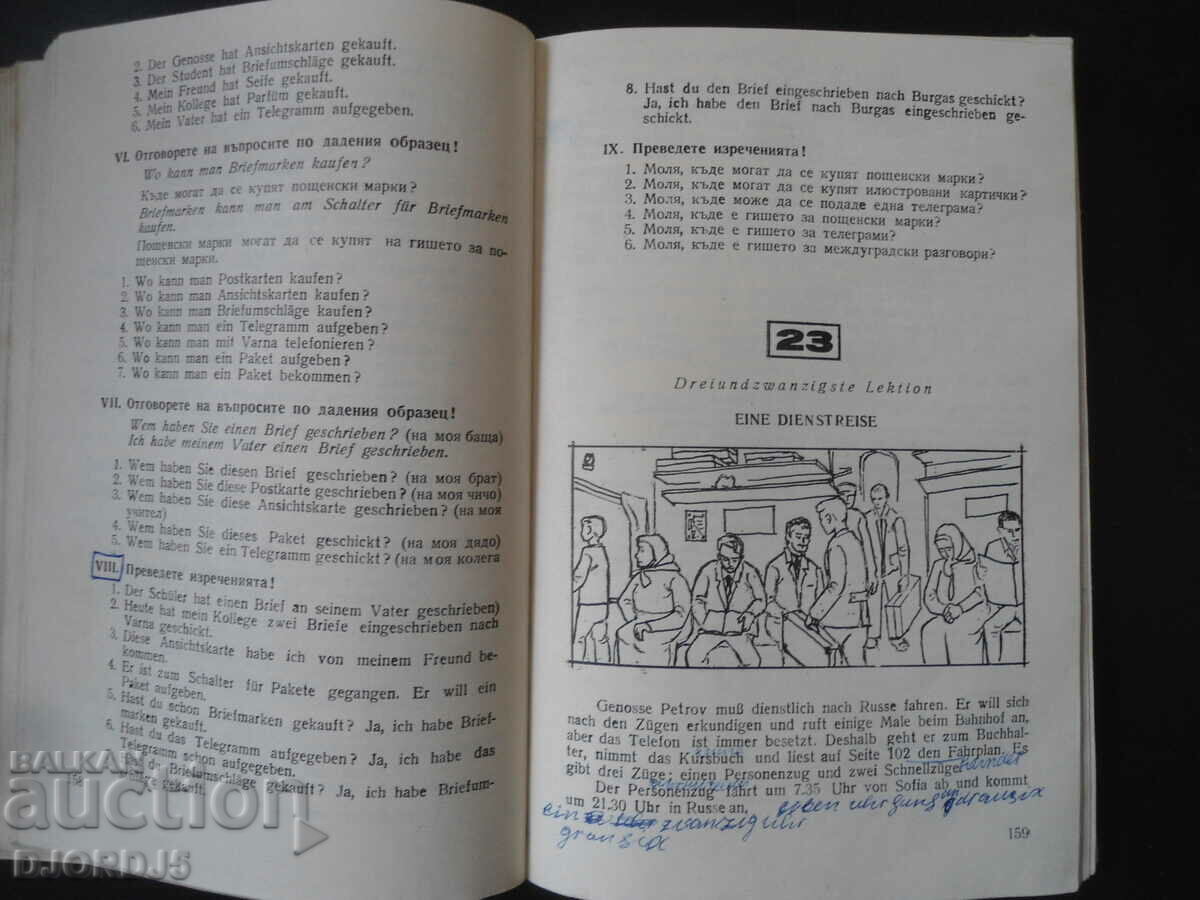 2. Der Genosse hat Ansichtskarten gekauft.
3. Der Student hat Briefumschläge gekauft.
4. Mein Freund hat Seife gekauft.
5. Mein Kollege hat Parfüm gekauft.
6. Mein Vater hat ein Telegramm aufgegeben.
VI. Отговорете на въпросите по дадения образец!
Wo kann man Briefmarken kaufen?
Къде могат да се купят пощенски марки?
Briefmarken kann man am Schalter für Briefmarken
kaufen.
Пощенски марки могат да се купят на гишето за по-
щенски марки.
1. Wo kann man Postkarten kaufen?
2. Wo kann man Ansichtskarten kaufen?
3. Wo kann man Briefumschläge kaufen?
4. Wo kann man ein Telegramm aufgeben?
5. Wo kann man mit Varna telefonieren?
6. Wo kann man ein Paket aufgeben?
7. Wo kann man ein Paket bekommen?
VII. Отговорете на въпросите по дадения образец!
Wem haben Sie einen Brief geschrieben? (на моя баща)
Ich habe meinem Vater einen Brief geschrieben.
1. Wem haben Sie diesen Brief geschrieben? (на моя брат)
2. Wem haben Sie diese Postkarte geschrieben? (на моя чичо)
3. Wem haben Sie diese Ansichtskarte geschrieben? (на моя
учител)
4. Wem haben Sie dieses Paket geschickt? (на моя дядо)
5. Wem haben Sie ein Telegramm geschickt? (на моя колега
VIII. Преведете изреченията!
1. Der Schüler hat einen Brief an seinem Vater geschrieben)
2. Heute hat mein Kollege zwei Briefe eingeschrieben nach
Varna geschickt.
3. Diese Ansichtskarte habe ich von meinem Freund be-
kommen.
4. Er ist zum Schalter für Pakete gegangen. Er will ein
Paket aufgeben.
5. Hast du schon Briefmarken gekauft? Ja, ich habe Brief-
marken gekauft.
6. Hast du das Telegramm aufgegeben? Ja, ich habe das
Telegramm schon aufgegeben.
du Briefumschläge gekauft? Ja, ich habe Briefum-
gekauft.
8. Hast du den Brief eingeschrieben nach Burgas geschickt?
Ja, ich habe den Brief nach Burgas eingeschrieben ge-
schickt.
IX. Преведете изреченията!
1. Моля, къде могат да се купят пощенски марки?
2. Моля, къде могат да се купят илюстровани картички?
3. Моля, къде може да се подаде една телеграма?
4. Моля, къде е гишето за пощенски марки?
5. Моля, къде е гишето за телеграми?
6. Моля, къде е гишето за междуградски разговори?
23
Dreiundzwanzigste Lektion
EINE DIENSTREISE
Genosse Petrov muß dienstlich nach Russe fahren. Er will sich
nach den Zügen erkundigen und ruft einige Male beim Bahnhof an,
aber das Telefon ist immer besetzt. Deshalb geht er zum Buchhal-
ter, nimmt das Kursbuch und liest auf Seite 102 den Fahrplan. Es
gibt drei Züge: einen Personenzug und zwei Schnellzüge
Der Personenzug fährt um 7.35 Uhr von Sofia ab und kommt
um 21.30 Uhr in Russe an,
ein zwanzig uhr
159
BALKAN
auction
DJORDJ5